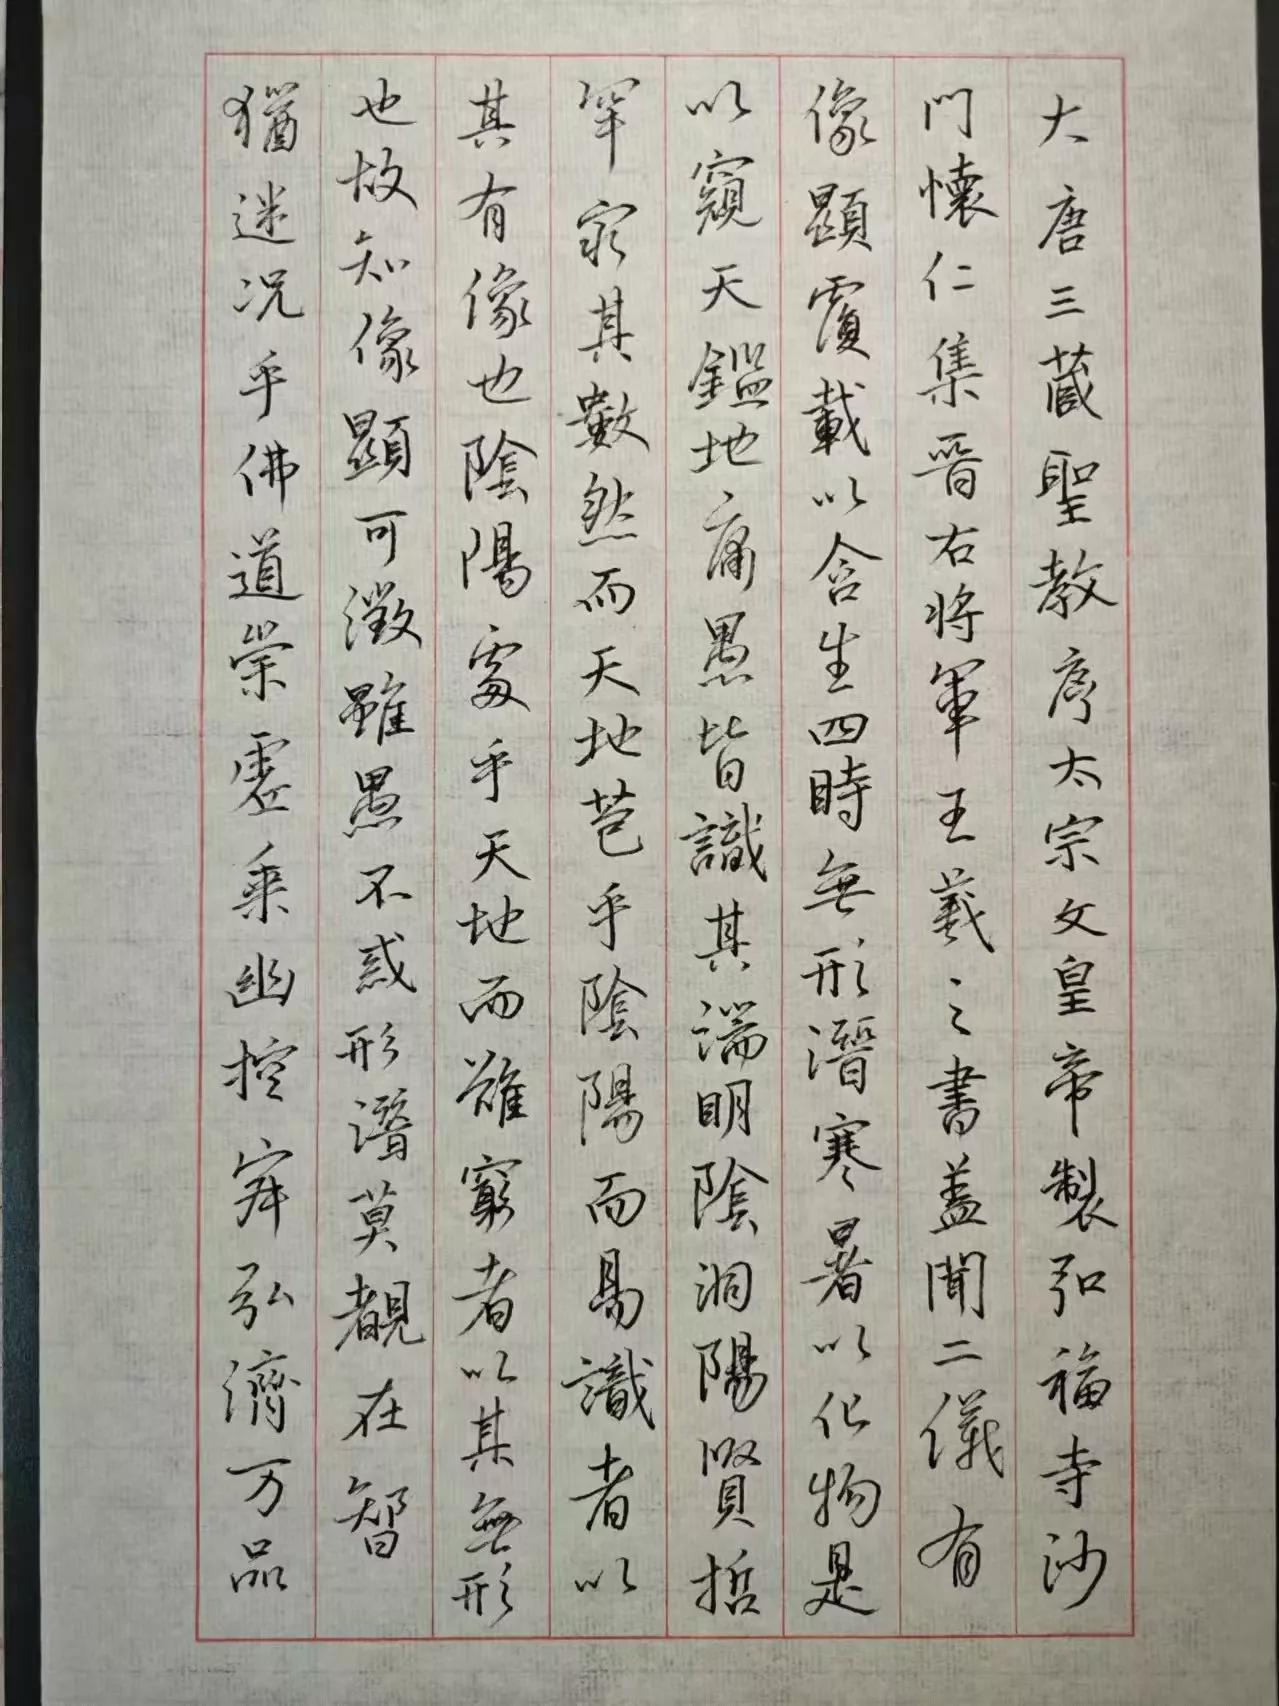 大唐三蔵聖教序太宗文皇帝製弘福寺沙
門懷仁集晉右将軍王羲之書蓋聞二儀有
像顯覆載以含生四時無形潛寒暑以化物是
以窺天鑑地庸愚皆識其端明陰洞陽賢哲
罕窮其數然而天地苞乎陰陽而易識者以
其有像也陰陽處乎天地而難窮者以其無形
也故知像顯可徵雖愚不惑形潛莫覩在智
猶迷况乎佛道崇虛乘幽控寂弘濟万品